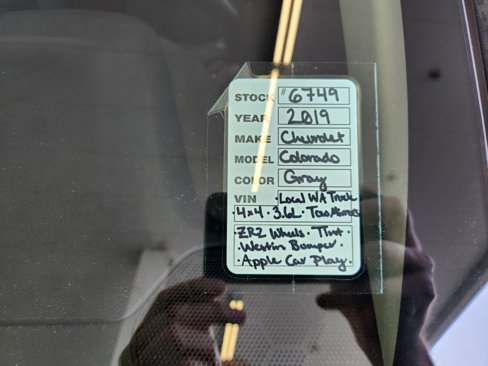 STOCK #6749
YEAR 2019
MAKE Chevrolet
MODEL Colorado
COLOR Gray
VIN ·Local WA Truck
·4x4·3.6L·Tow Mirrors
·ZR2 Wheels·Tint·
·Westin Bumper·
·Apple Car Play·